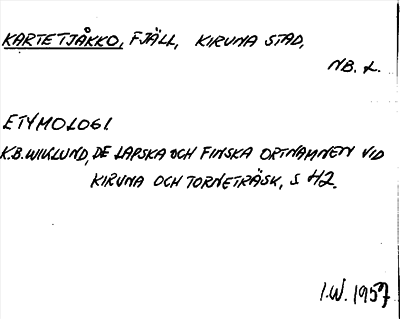 KARTETJÅKKO, FJÄLL, KIRUNA STAD,
NB. L.
ETYMOLOGI
K.B. WIKLUND, DE LAPSKA OCH FINSKA ORTNAMNEN VID
KIRUNA OCH TORNETRÄSK, S 42.
I.W. 1957